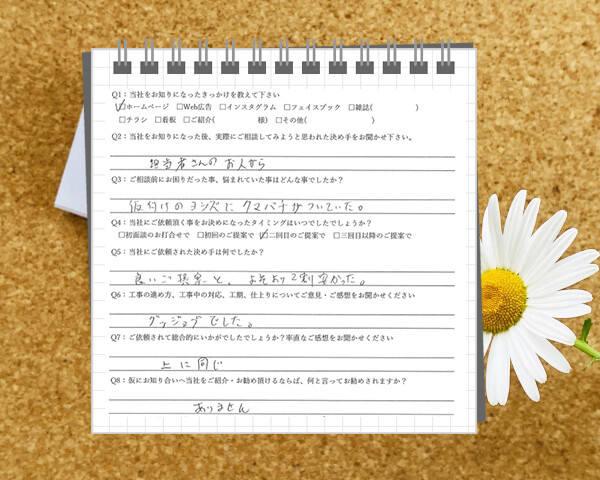 Q1：当社をお知りになったきっかけを教えて下さい
☑ホームページ □Web広告 □インスタグラム □フェイスブック □雑誌( )
□チラシ □看板 □ご紹介( 様) □その他( )
Q2：当社をお知りになった後、実際にご相談してみようと思われた決め手をお聞かせ下さい。
担当者さんのお人から
Q3：ご相談前にお困りだった事、悩まれていた事はどんな事でしたか？
仮付けのヨシズにクマバチがついていた。
Q4：当社にご依頼頂く事をお決めになったタイミングはいつでしたでしょうか？
□初面談のお打合せで □初回のご提案で ☑二回目のご提案で □三回目以降のご提案で
Q5：当社にご依頼された決め手は何でしたか？
良いご提案と、よそより2割安かった。
Q6：工事の進め方、工事中の対応、工期、仕上りについてご意見・ご感想をお聞かせください
グッジョブでした。
Q7：ご依頼されて総合的にいかがでしたでしょうか？率直なご感想をお聞かせください
上に同じ
Q8：仮にお知り合いへ当社をご紹介・お勧め頂けるならば、何と言ってお勧めされますか？
ありません